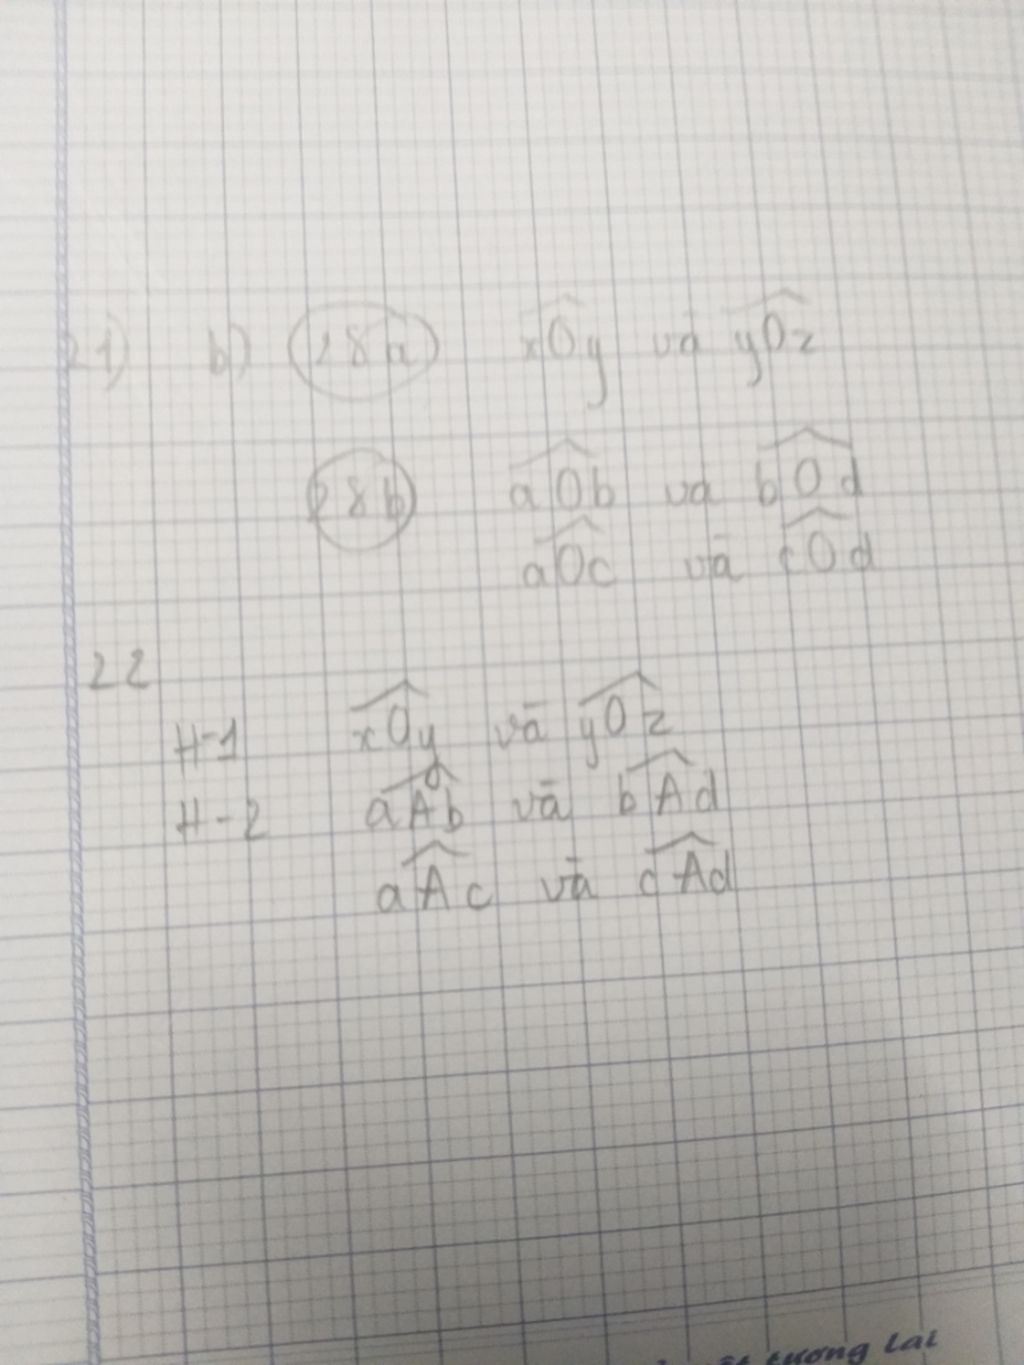 21) b) 28a xOy và yOz
28b aOb và bOd
aOc và cOd
22
H-1 xOy và yOz
H-2 aAb và bAd
aAc và cAd
tương lai